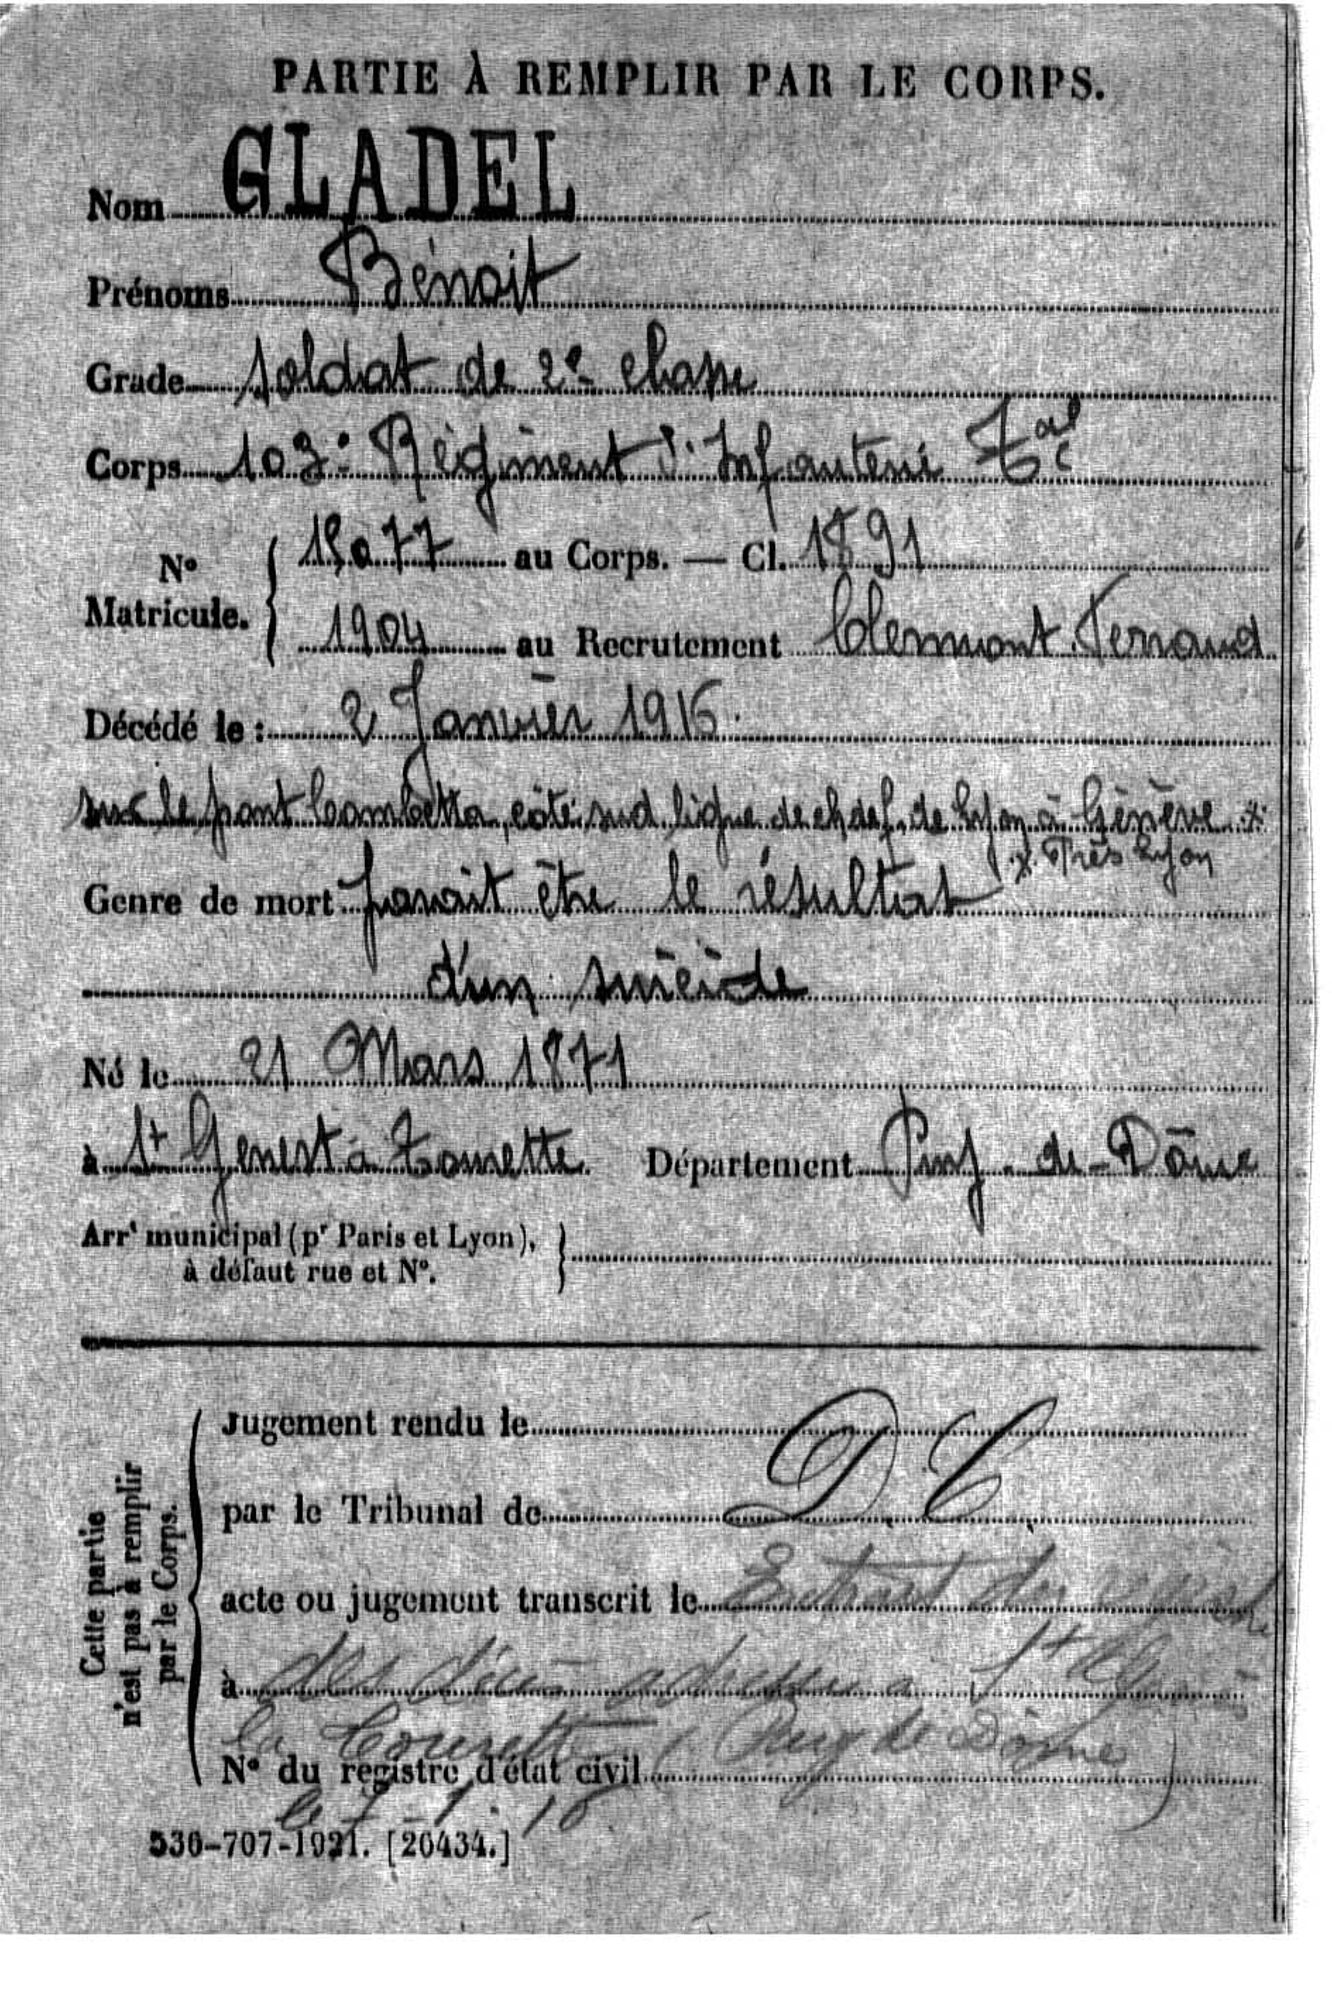 PARTIE À REMPLIR PAR LE CORPS.
Nom GLADEL
Prénoms Bénoit
Grade Soldat de 2e classe
Corps 103e Régiment d'Infanterie Tale
N° Matricule. { 15077 au Corps. — Cl. 1891
1904 au Recrutement Clermont Ferrand
Décédé le : 2 Janvier 1916.
sur le pont Gambetta, côté sud ligne de ch de f. de Lyon à Genève x
x Près Lyon
Genre de mort parait être le résultat
d'un suicide
Né le 21 Mars 1871
à St Genest à Tourette Département Puy-de-Dôme
Arrt municipal (pr Paris et Lyon),
à défaut rue et N°.
Cette partie n'est pas à remplir par le Corps.
Jugement rendu le
par le Tribunal de D. C.
acte ou jugement transcrit le Extrait du registre
à des décès adressé à St Genès
la Tourette (Puy de Dôme)
N° du registre d'état civil
le 7-1-16
536-707-1921. [20434.]